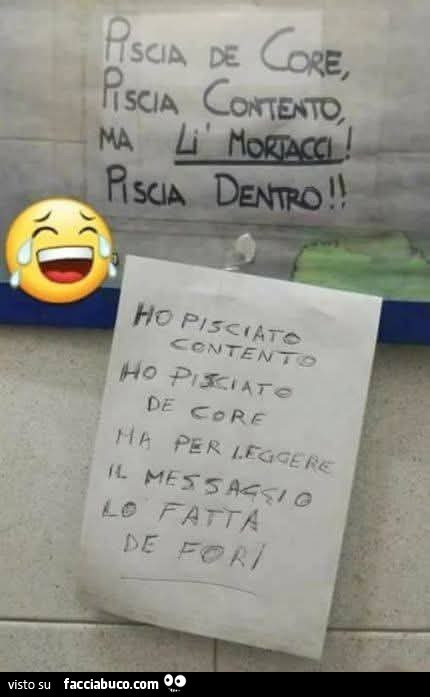 PISCIA DE CORE,
PISCIA CONTENTO,
MA LI' MORTACCI!
PISCIA DENTRO!!
HO PISCIATO
CONTENTO
HO PISCIATO
DE CORE
MA PER LEGGERE
IL MESSAGGIO
LO FATTA
DE FORI
visto su facciabuco.com